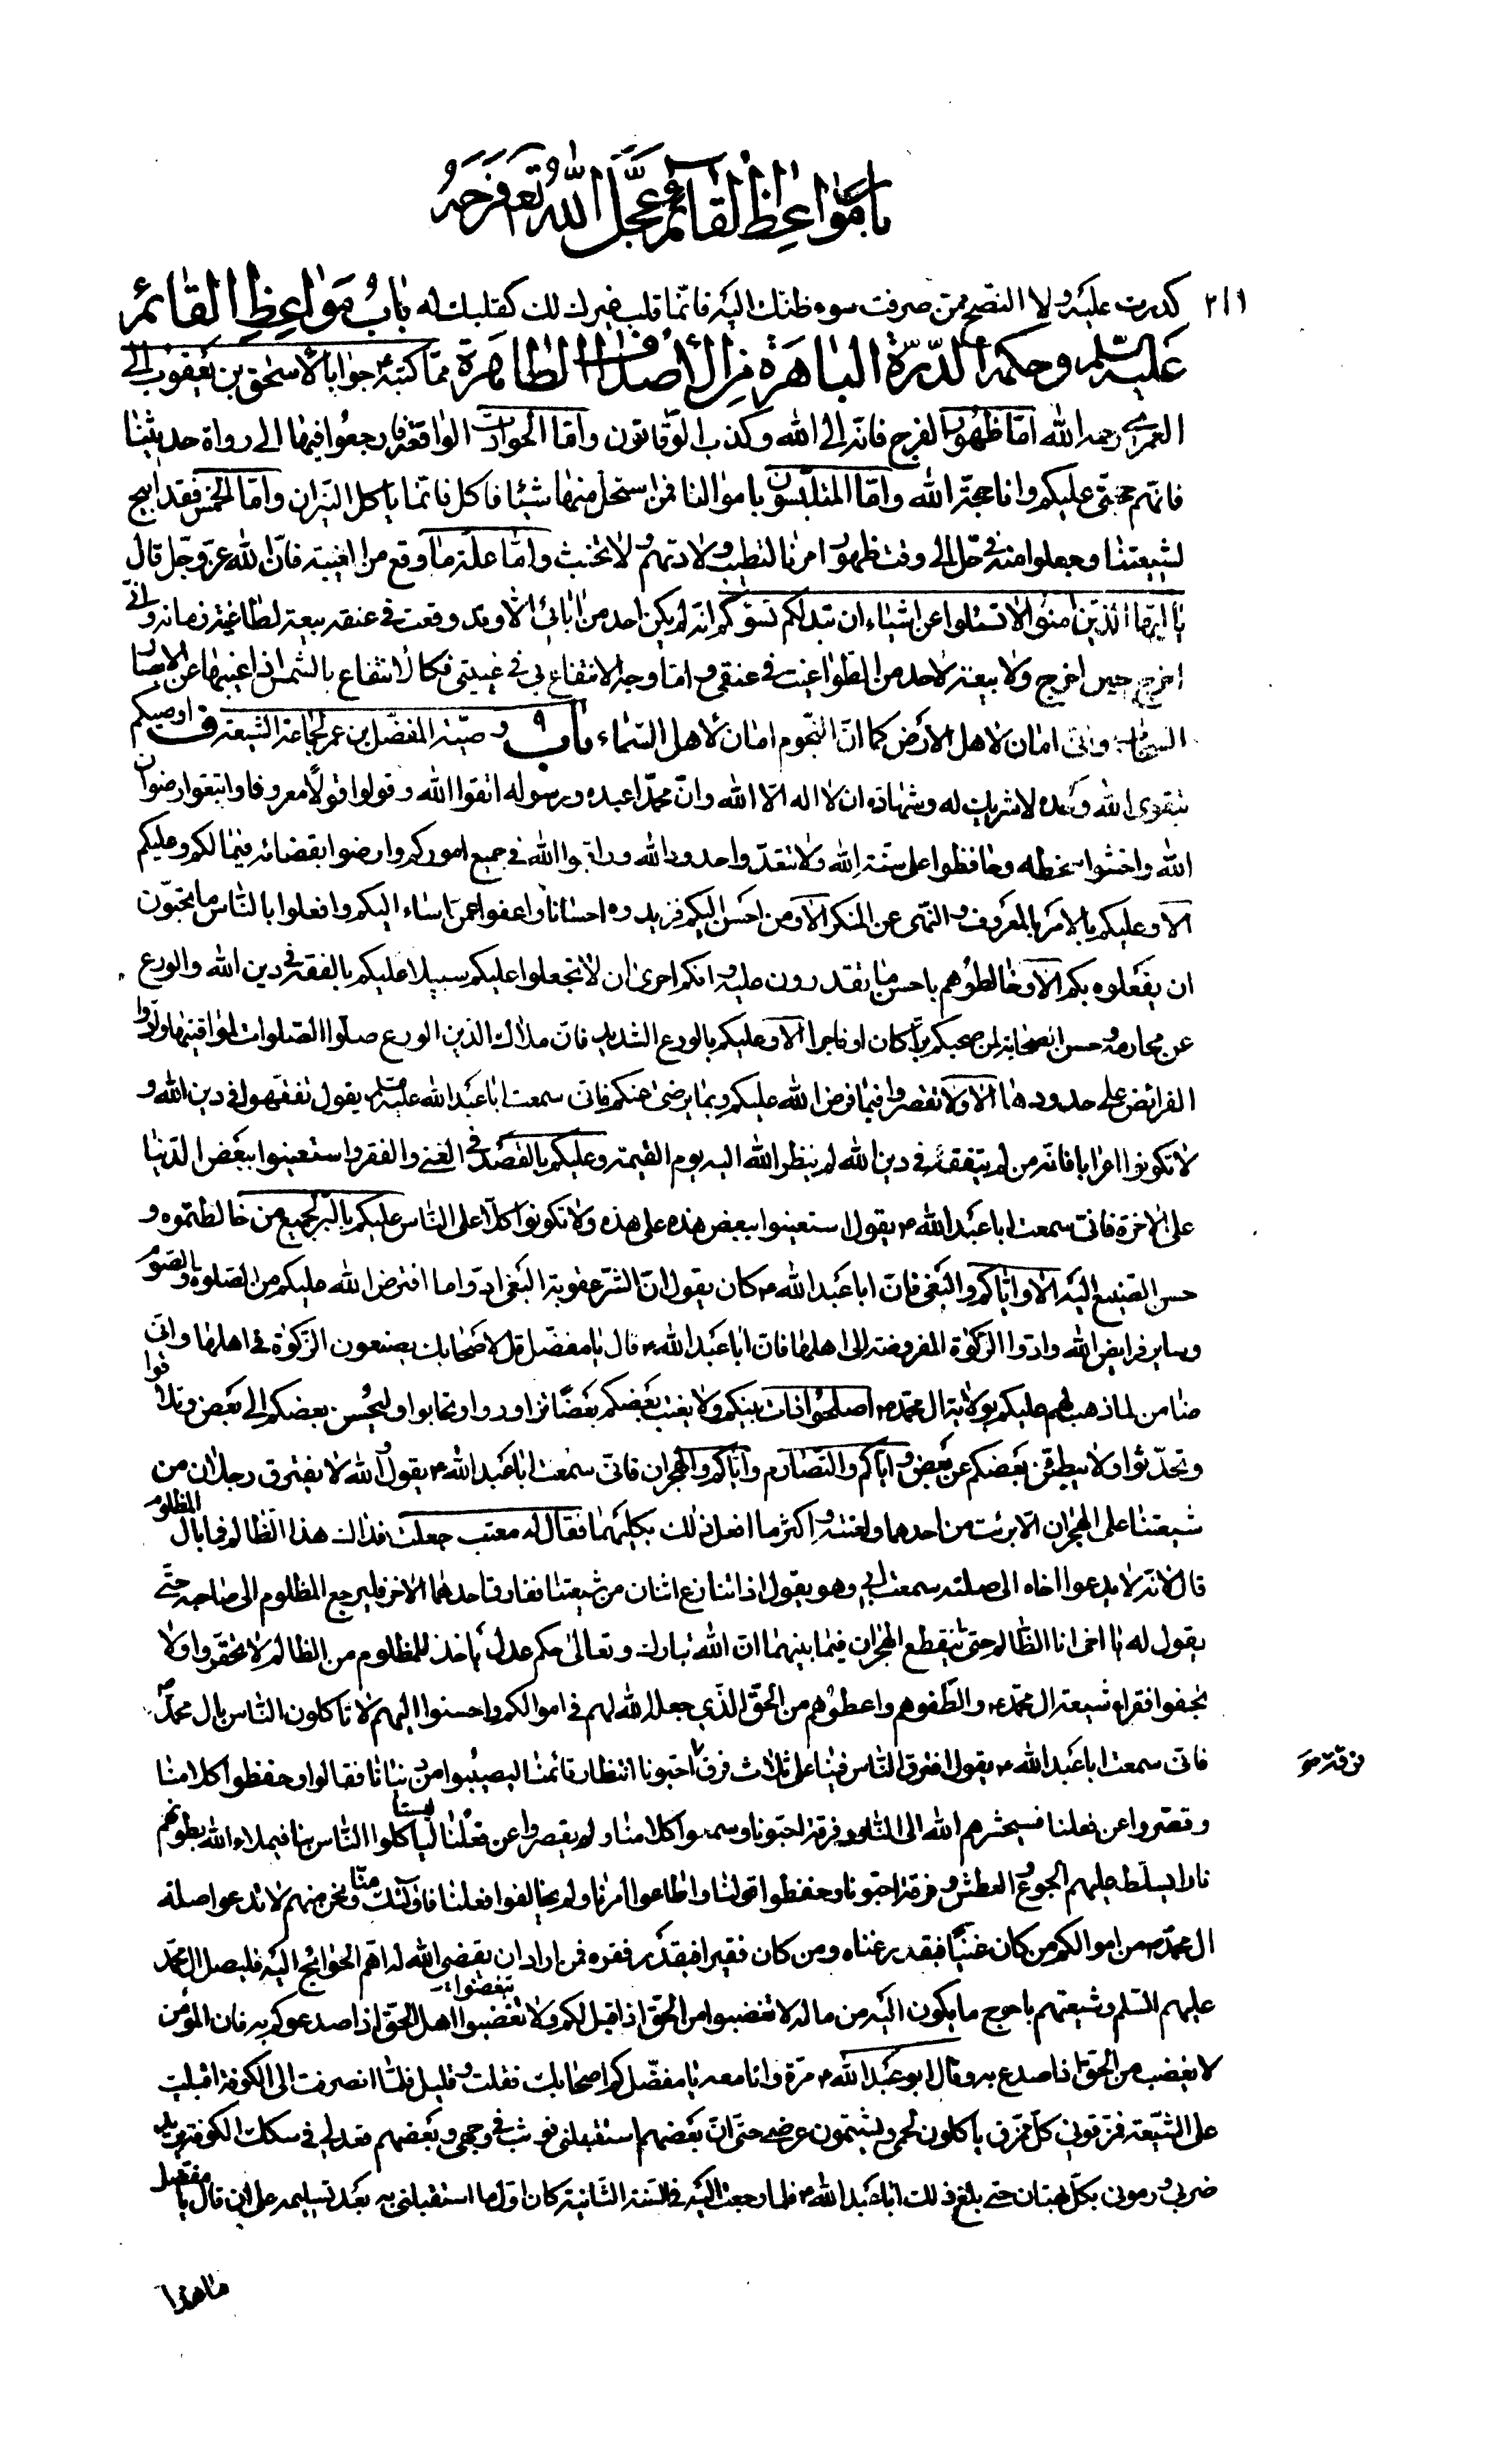 باب مواعظ القائم عجل الله تع فرجه
٢١١
كدرت عليه ولا النصح ممن صرفت سوء ظنك اليه فانما قلب غيرك لك كقلبك له باب مواعظ القائم
عليه السلم وحكمه الدرة الباهرة من الأصداف الطاهرة مما كتبه ع جوابا لاسحق بن يعقوب الى
العمرى رحمه الله اما ظهور الفرج فانه الى الله وكذب الوقاتون واما الحوادث الواقعة فارجعوا فيها الى رواة حديثنا
فانهم حجتى عليكم وانا حجة الله واما المتلبسون باموالنا فمن استحل منها شيئا فاكل فانما ياكل النيران واما الخمس فقد ابيح
لشيعتنا وجعلوا منه فى حل الى وقت ظهور امرنا لتطيب ولادتهم ولا تخبث واما علة ما وقع من الغيبة فان الله عز وجل قال
يا ايها الذين امنوا لا تسئلوا عن اشياء ان تبد لكم تسؤكم انه لم يكن احد من ابائى الا وقد وقعت فى عنقه بيعة لطاغية زمانه وانى
اخرج حين اخرج ولا بيعة لاحد من الطواغيت فى عنقى واما وجه الانتفاع بى فى غيبتى فكالانتفاع بالشمس اذا غيبها عن الابصار
السحاب وانى امان لاهل الارض كما ان النجوم امان لاهل السماء باب وصية المفضل بن عمر لجماعة الشيعة ف اوصيكم
بتقوى الله وحده لا شريك له وشهادة ان لا اله الا الله وان محمدا عبده ورسوله اتقوا الله وقولوا قولا معروفا وابتغوا رضوان
الله واخشوا سخطه وحافظوا على سنة الله ولا تتعدوا حدود الله وراقبوا الله فى جميع اموركم وارضوا بقضائه فيما لكم وعليكم
الا وعليكم بالامر بالمعروف والنهى عن المنكر الا ومن احسن اليكم فزيدوه احسانا واعفوا عمن اساء اليكم وافعلوا بالناس ما تحبون
ان يفعلوه بكم الا وخالطوهم باحسن ما تقدرون عليه وانكم احرى ان لا تجعلوا عليكم سبيلا عليكم بالفقه فى دين الله والورع
عن محارمه وحسن الصحابة لمن صحبكم برا كان او فاجرا الا وعليكم بالورع الشديد فان ملاك الدين الورع صلوا الصلوات لمواقيتها وادوا
الفرائض على حدودها الا ولا تقصروا فيما فرض الله عليكم وبما يرضى عنكم فانى سمعت ابا عبد الله عليه السلم يقول تفقهوا فى دين الله و
لا تكونوا اعرابا فانه من لم يتفقه فى دين الله لم ينظر الله اليه يوم القيمة وعليكم بالقصد فى الغنى والفقر واستعينوا ببعض الدنيا
على الاخرة فانى سمعت ابا عبد الله ع يقول استعينوا ببعض هذه على هذه ولا تكونوا كلا على الناس عليكم بالبر لجميع من خالطتموه و
حسن الصنيع اليه الا واياكم والبغى فان ابا عبد الله ع كان يقول ان اسرع الشر عقوبة البغى ادوا ما افترض الله عليكم من الصلوة والصوم
وساير فرايض الله وادوا الزكوة المفروضة الى اهلها فان ابا عبد الله ع قال يا مفضل قل لاصحابك يضعون الزكوة فى اهلها وانى
ضامن لما ذهب لهم عليكم بولاية ال محمد ص اصلحوا ذات بينكم ولا يغتب بعضكم بعضا تزاوروا وتحابوا وليحسن بعضكم الى بعض وتلاقوا
وتحدثوا ولا يبطئن بعضكم عن بعض واياكم والتصارم واياكم والهجران فانى سمعت ابا عبد الله ع يقول والله لا يفترق رجلان من
شيعتنا على الهجران الا برئت من احدهما ولعنته واكثر ما افعل ذلك بكليهما فقال له معتب جعلت فداك هذا الظالم فما بال المظلوم
قال لانه لا يدعوا اخاه الى صلته سمعت ابى وهو يقول اذا تنازع اثنان من شيعتنا ففارق احدهما الاخر فليرجع المظلوم الى صاحبه حتى
يقول له يا اخى انا الظالم حتى ينقطع الهجران فيما بينهما ان الله تبارك وتعالى حكم عدل ياخذ للمظلوم من الظالم لا تحقروا ولا
تجفوا فقراء شيعة ال محمد ع والطفوهم واعطوهم من الحق الذى جعله الله لهم فى اموالكم واحسنوا اليهم لا تاكلون الناس بال محمد ص
فانى سمعت ابا عبد الله ع يقول افترق الناس فينا على ثلاث فرق احبونا انتظار قائمنا ليصيبوا من دنيانا فقالوا وحفظوا كلامنا
وقصروا عن فعلنا فسيحشرهم الله الى النار وفرقة احبونا وسمعوا كلامنا ولم يقصروا عن فعلنا لياكلوا الناس بنا فيملاء الله بطونهم
نارا يسلط عليهم الجوع والعطش وفرقة احبونا وحفظوا قولنا واطاعوا امرنا ولم يخالفوا فعلنا فاولئك منا ونحن منهم لا تدعوا صلة
ال محمد ص من اموالكم من كان غنيا فبقدر غناه ومن كان فقيرا فبقدر فقره فمن اراد ان يقضى الله له اهم الحوائج اليه فليصل ال محمد
عليهم السلم وشيعتهم باحوج ما يكون اليه من ماله لا تغضبوا من الحق اذا قيل لكم ولا تغضبوا اهل الحق اذا صدعوكم به فان المؤمن
لا يغضب من الحق اذا صدع به وقال ابو عبد الله ع مرة وانا معه يا مفضل كم اصحابك فقلت وقليل فلما انصرفت الى الكوفة اقبلت
على الشيعة فمزقونى كل ممزق ياكلون لحمى ويشتمون عرضى حتى ان بعضهم استقبلنى فوثب فى وجهى وبعضهم قعد لى فى سكك الكوفة يريد
ضربى ورمونى بكل بهتان حتى بلغ ذلك ابا عبد الله ع فلما رجعت اليه فى السنة الثانية كان اول ما استقبلنى به بعد تسليمه على ان قال يا مفضل
ما هذا